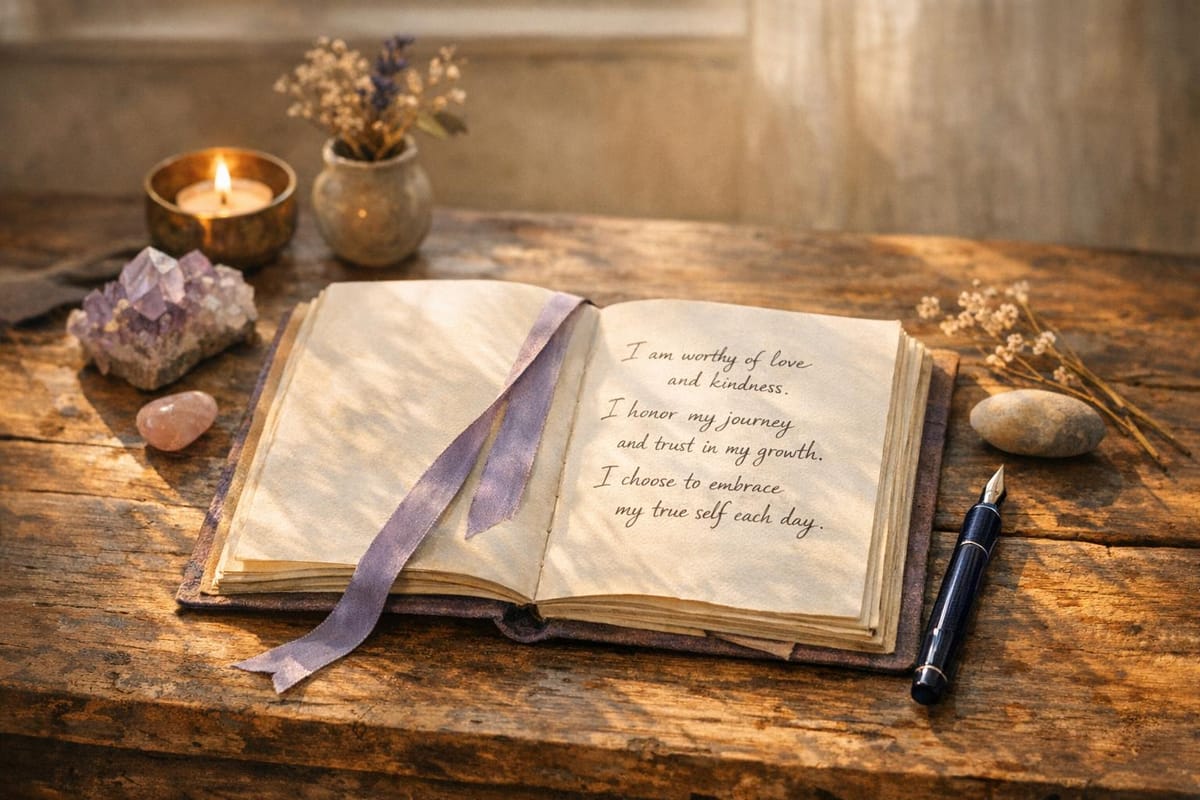 I am worthy of love
and kindness.
I honor my journey
and trust in my growth.
I choose to embrace
my true self each day.